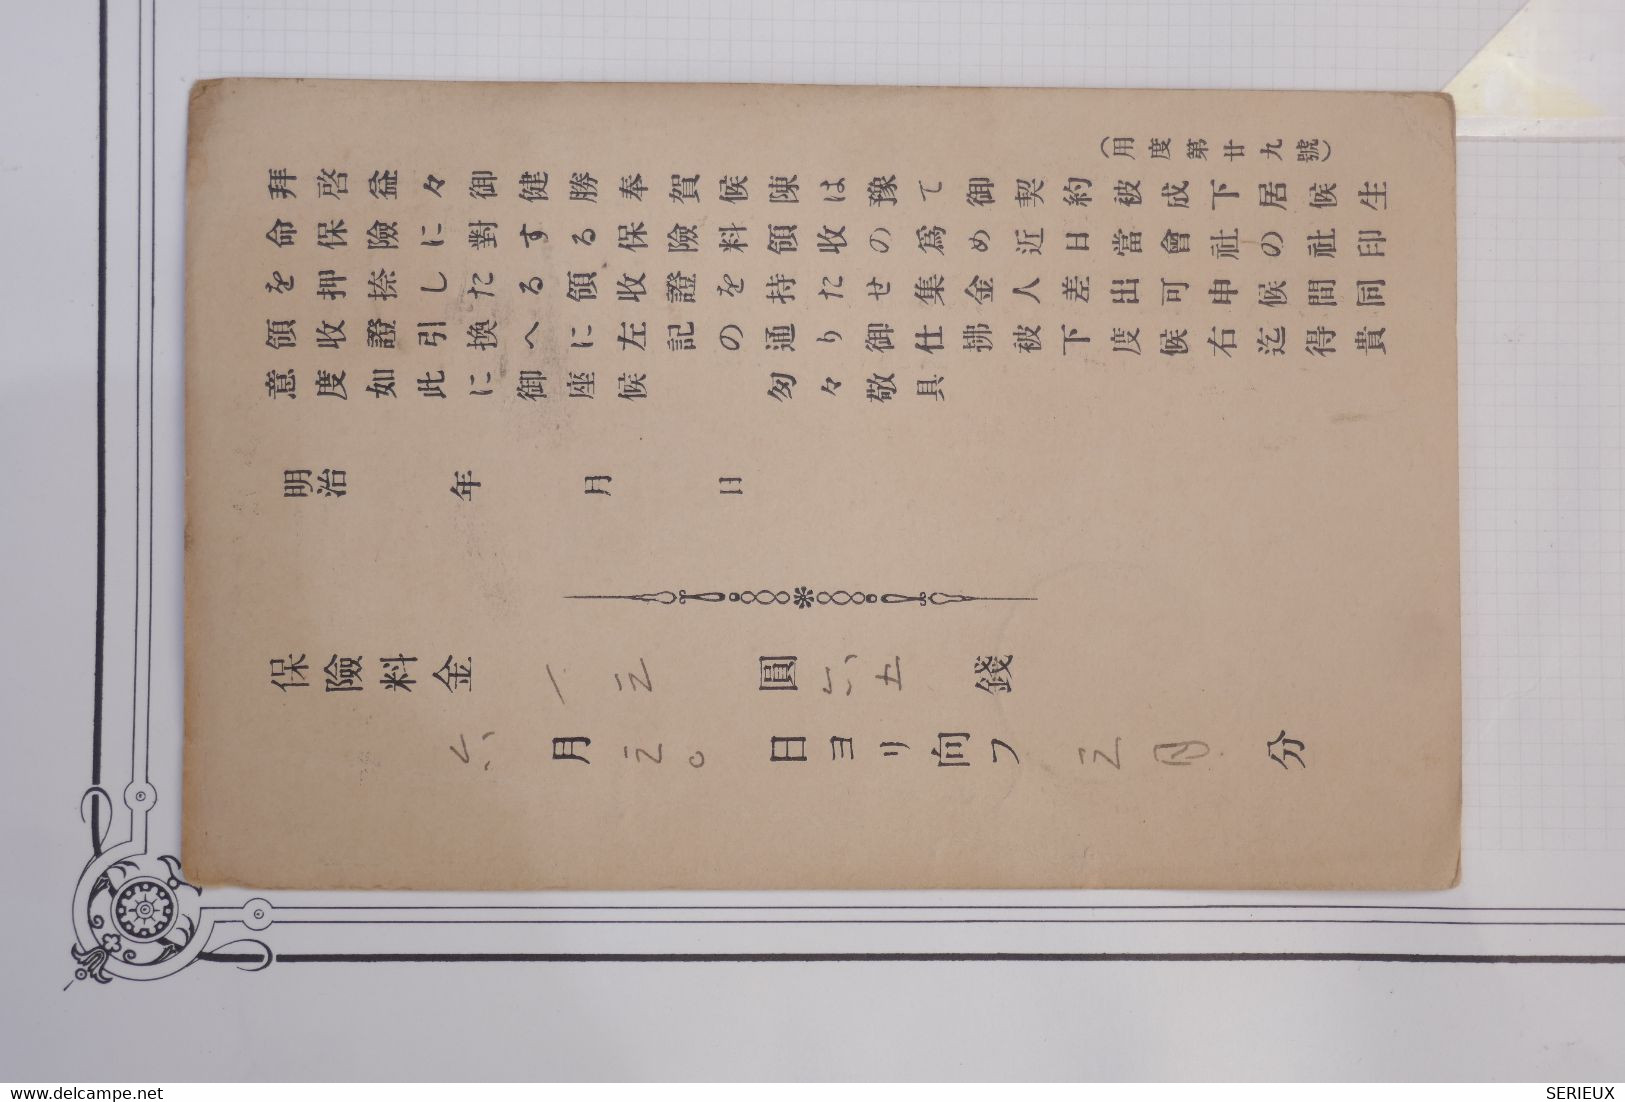 (用度第廿九號)
拜啓益々御健勝奉賀候陳は豫て御契約被成下居候生
命保險に對する保險料領收の爲め近日當會社の社印
を押捺したる領收證を持たせ集金人差出可申候間同
領收證引換へに左記の通り御仕拂被下度候右迄得貴
意度如此に御座候 匆々敬具
明治 年 月 日
保險料金 一三 圓 六五 錢
六 月 三〇 日ヨリ向フ 三月 分
delcampe.net
SERIEUX